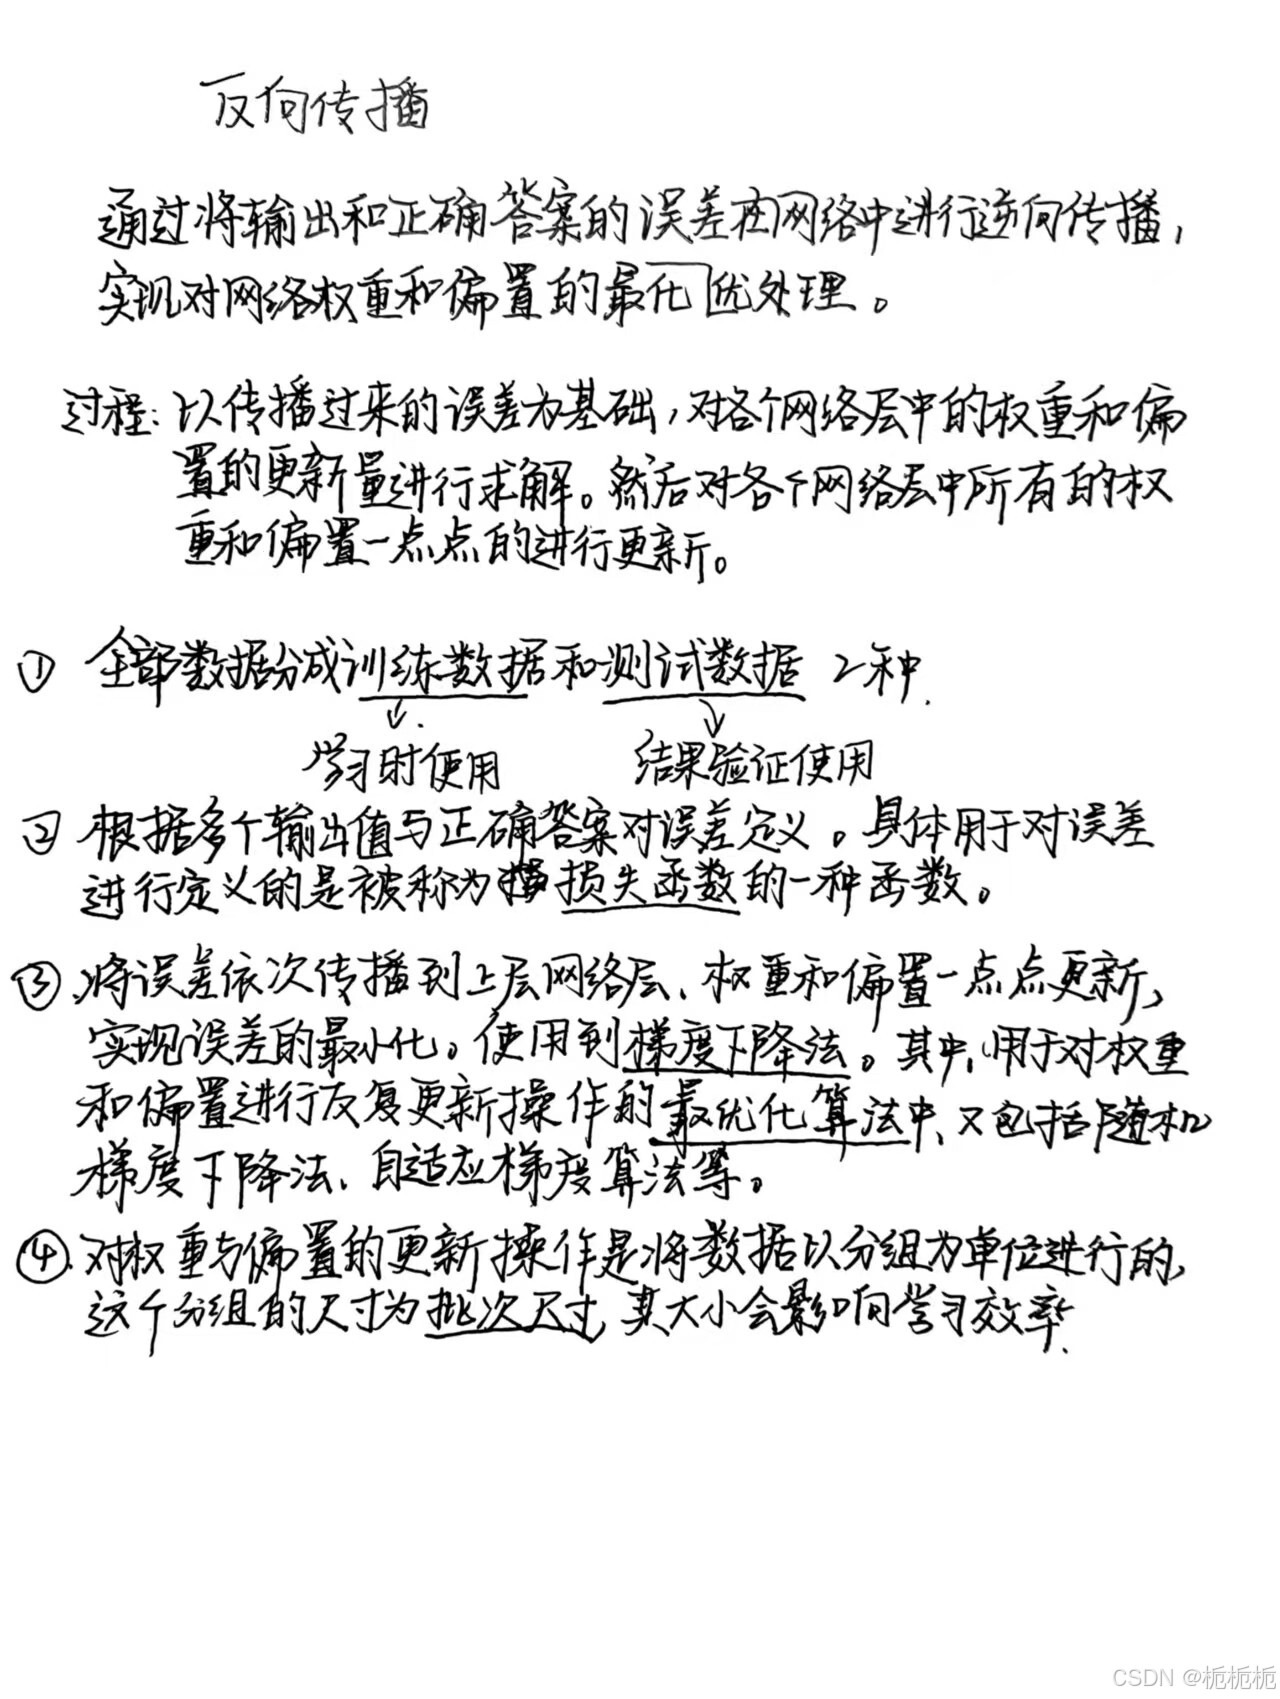 反向传播
通过将输出和正确答案的误差在网络中进行逆向传播,
实现对网络权重和偏置的最化优处理。
过程:以传播过来的误差为基础,对各个网络层中的权重和偏
置的更新量进行求解。然后对各个网络层中所有的权
重和偏置一点点的进行更新。
① 全部数据分成训练数据和测试数据 2种.
学习时使用 结果验证使用
② 根据多个输出值与正确答案对误差定义。具体用于对误差
进行定义的是被称为损失函数的一种函数。
③、将误差依次传播到上层网络层、权重和偏置一点点更新,
实现误差的最小化。使用到梯度下降法。其中,用于对权重
和偏置进行反复更新操作的最优化算法中、又包括随机
梯度下降法、自适应梯度算法等。
④.对权重与偏置的更新操作是将数据以分组为单位进行的,
这个分组的尺寸为批次尺寸,其大小会影响学习效率.
CSDN @栀栀栀